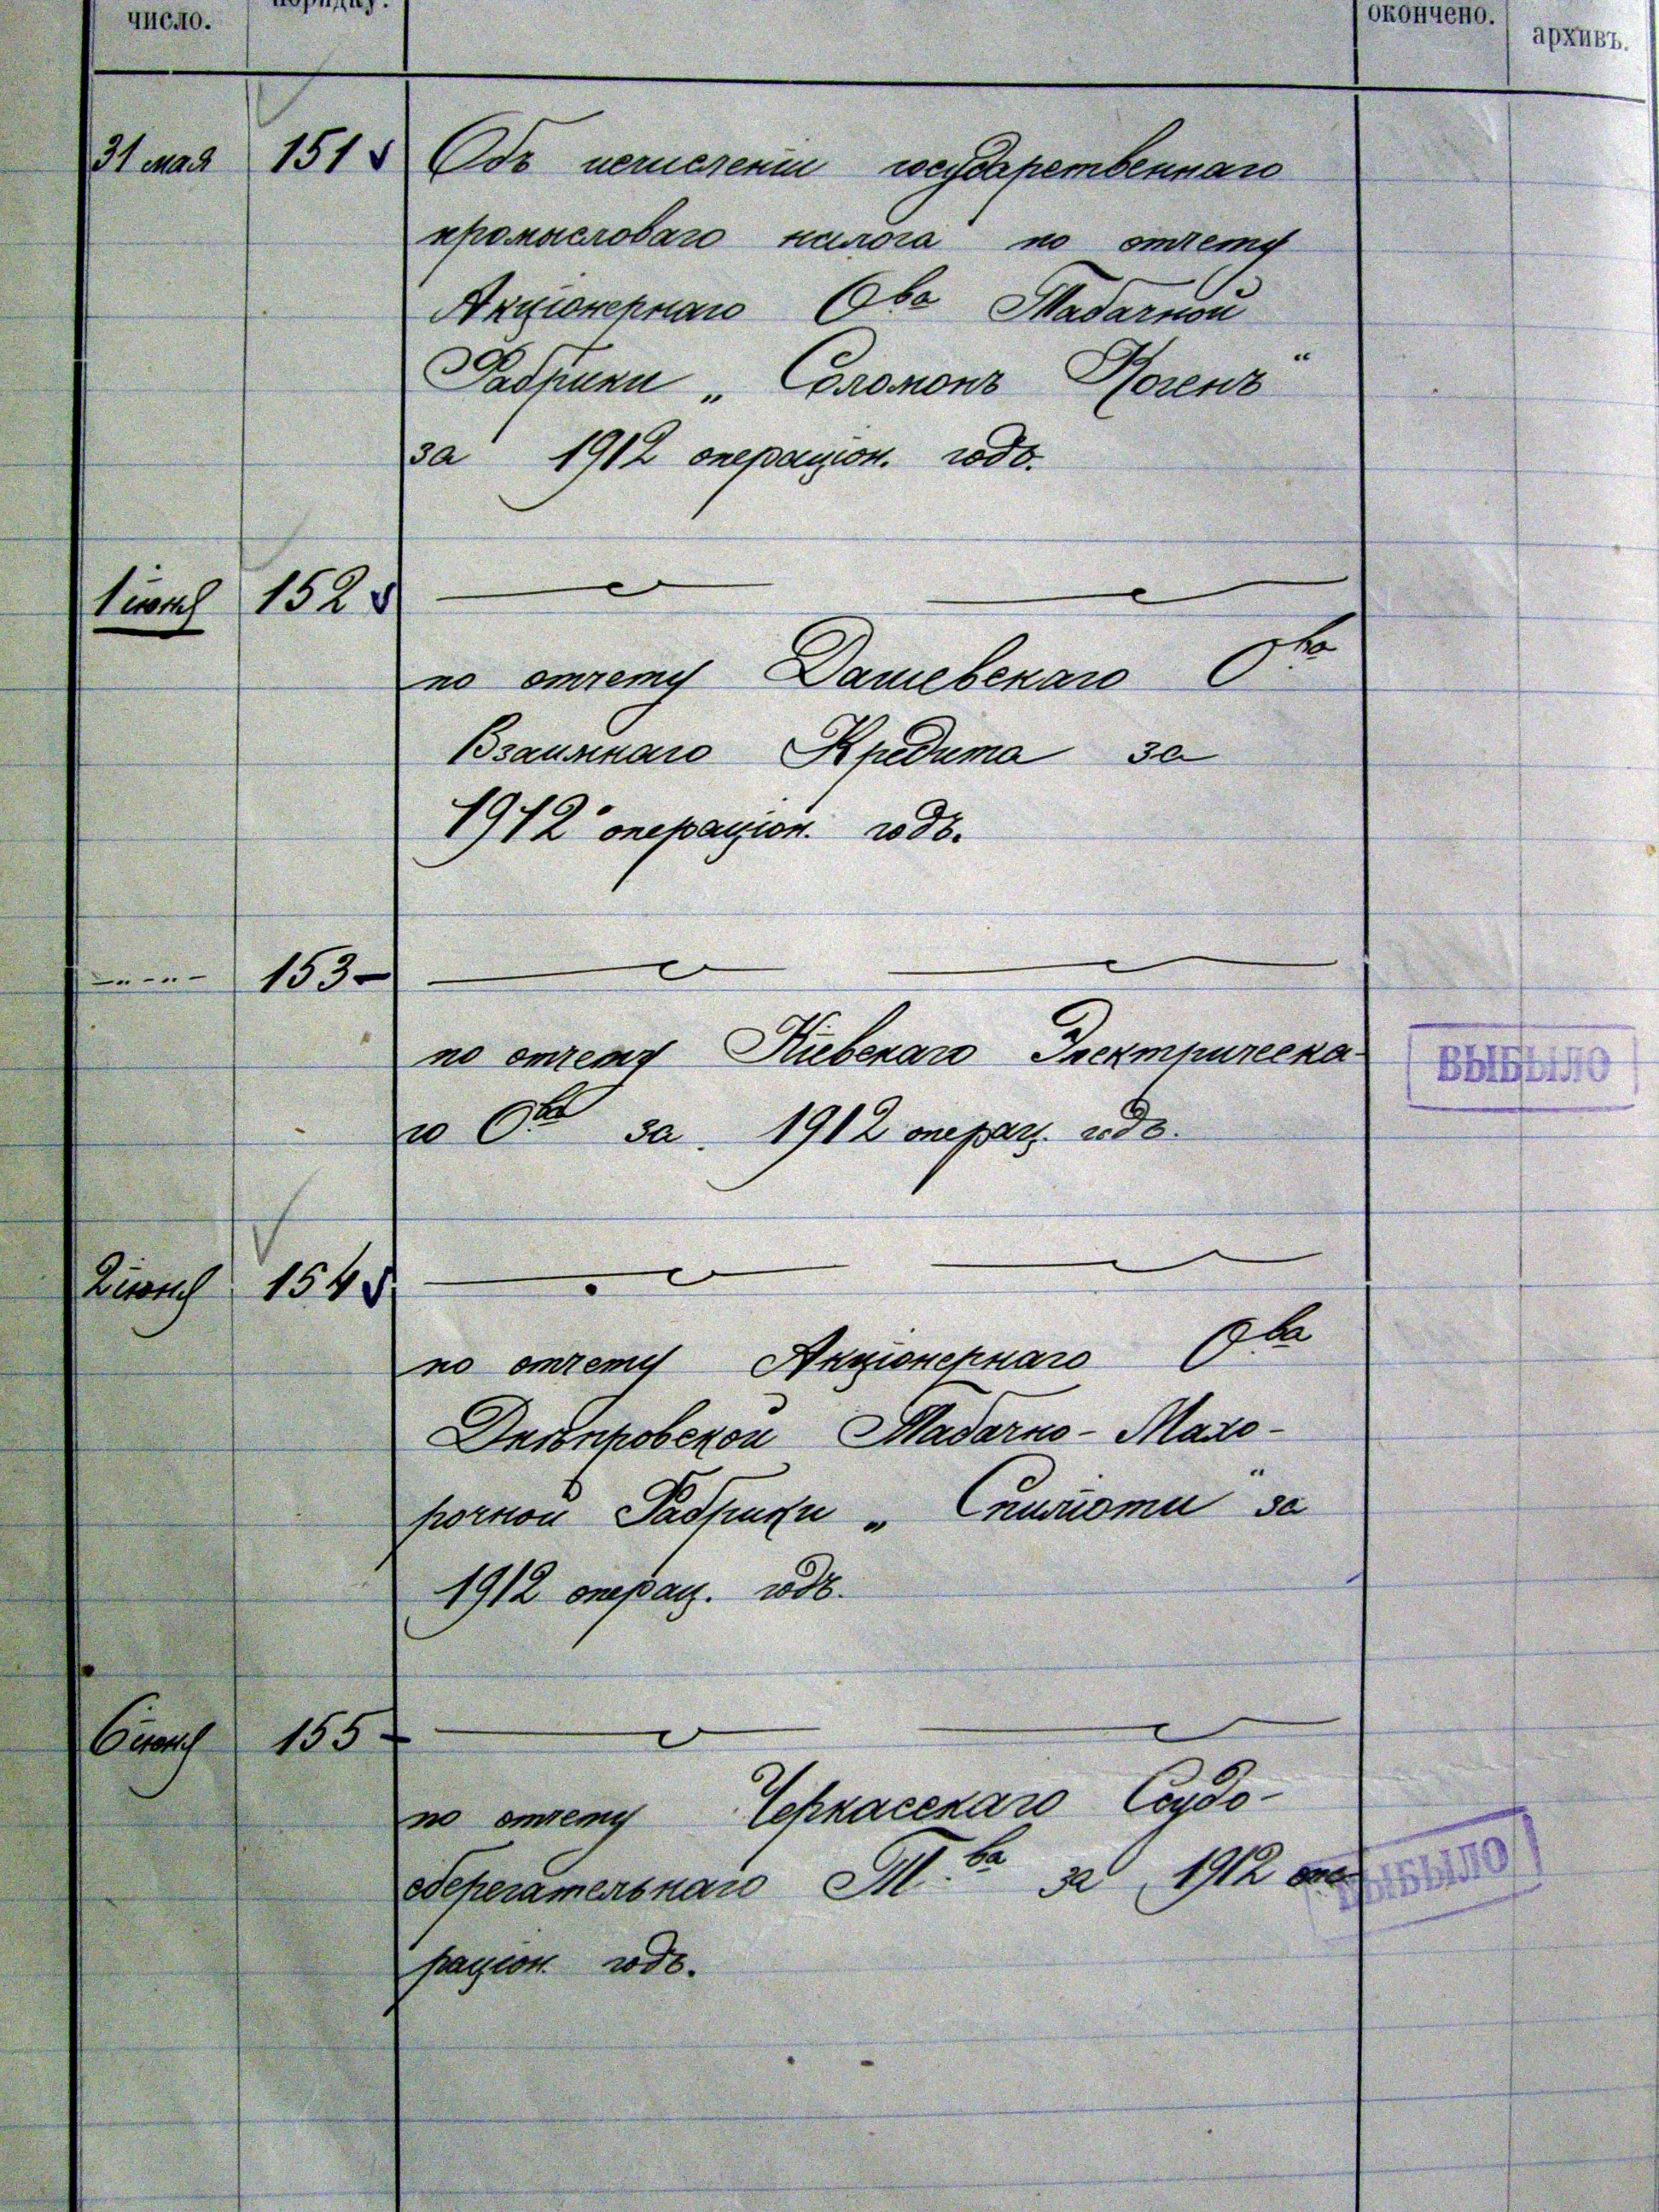 число.
порядку.
окончено.
архивъ.
31 мая 151 Объ исчисленіи государственнаго
промысловаго налога по отчету
Акціонернаго О-ва Табачной
Фабрики „ Соломонъ Когенъ “
за 1912 операціон. годъ.
1 іюня 152
по отчету Дашевскаго О-ва
Взаимнаго Кредита за
1912 операціон. годъ.
153
по отчету Кіевскаго Электрическа-
го О-ва за 1912 операц. годъ.
ВЫБЫЛО
2 іюня 154
по отчету Акціонернаго О-ва
Днѣпровской Табачно-Махо-
рочной Фабрики „ Спиліоти “ за
1912 операц. годъ.
6 іюня 155
по отчету Черкасскаго Ссудо-
сберегательнаго Т-ва за 1912 опе-
ВЫБЫЛО
раціон. годъ.